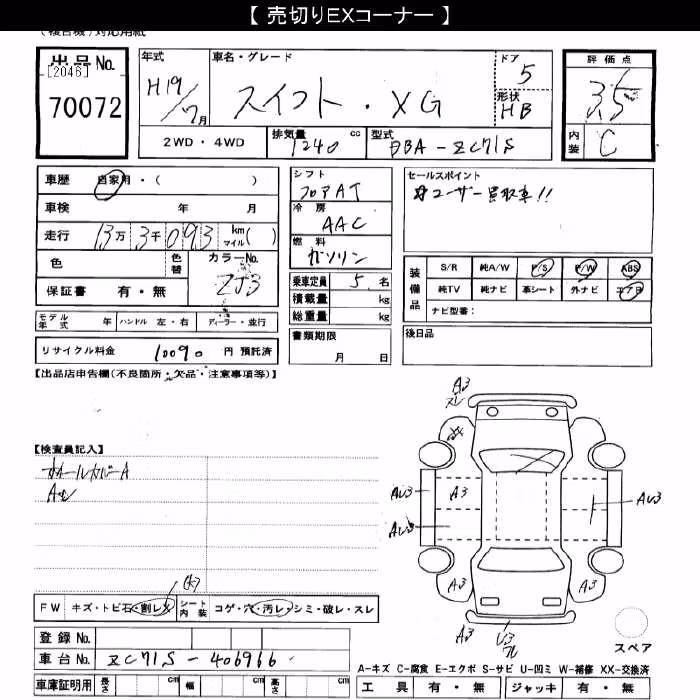 【 売切りEXコーナー 】
(複合機)対応用紙
出品No.
[2046]
70072
年式
H19/7月
車名・グレード
スイフト・XG
ドア
5
形状
HB
評価点
3.5
内装
C
2WD・4WD
排気量
1240 cc
型式
DBA-ZC71S
車歴 自家用・( )
車検 年 月
走行 13万 3千 093 km マイル( )
色 色替 カラーNo. ZJ3
保証書 有・無
シフト
フロアAT
冷房
AAC
燃料
ガソリン
乗車定員 5 名
積載量 kg
総重量 kg
セールスポイント
オユーザー買取車!!
装備品
S/R 純A/W P/S P/W ABS
純TV 純ナビ 革シート 外ナビ エアB
ナビ型番:
モデル年式 年 ハンドル 左・右 ディーラー・並行
リサイクル料金 10090 円 預託済
書類期限
月 日
後日品
【出品店申告欄(不良箇所・欠品・注意事項等)】
【検査員記入】
ホイールカバーA
A3
スレ
XX
AU3
A3
AU3
AU3
A3
A3
A3
U3
FW キズ・トビ石・割レX シート内装 コゲ・穴・汚レ・シミ・破レ・スレ
登録No.
車台No. ZC71S-406966
車庫証明用 長さ cm 幅 cm 高さ cm
スペア
A-キズ C-腐食 E-エクボ S-サビ U-凹ミ W-補修 XX-交換済
工具 有・無 ジャッキ 有・無